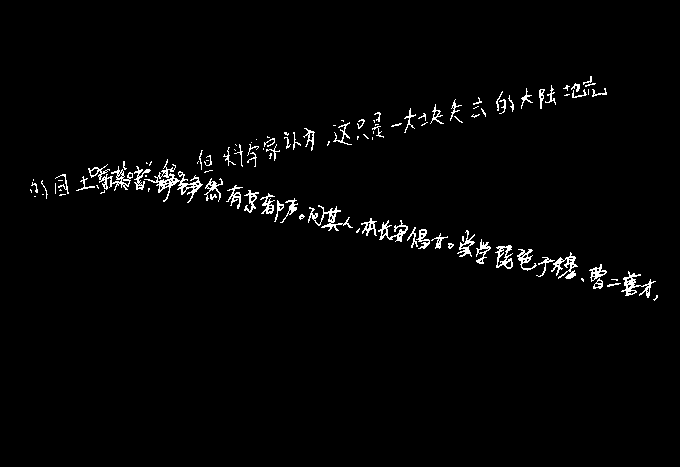 的国土 但科学家认为,这只是一大块失去的大陆地壳
铮铮然有京都声。问其人,本长安倡女。尝学琵琶于穆、曹二善才,